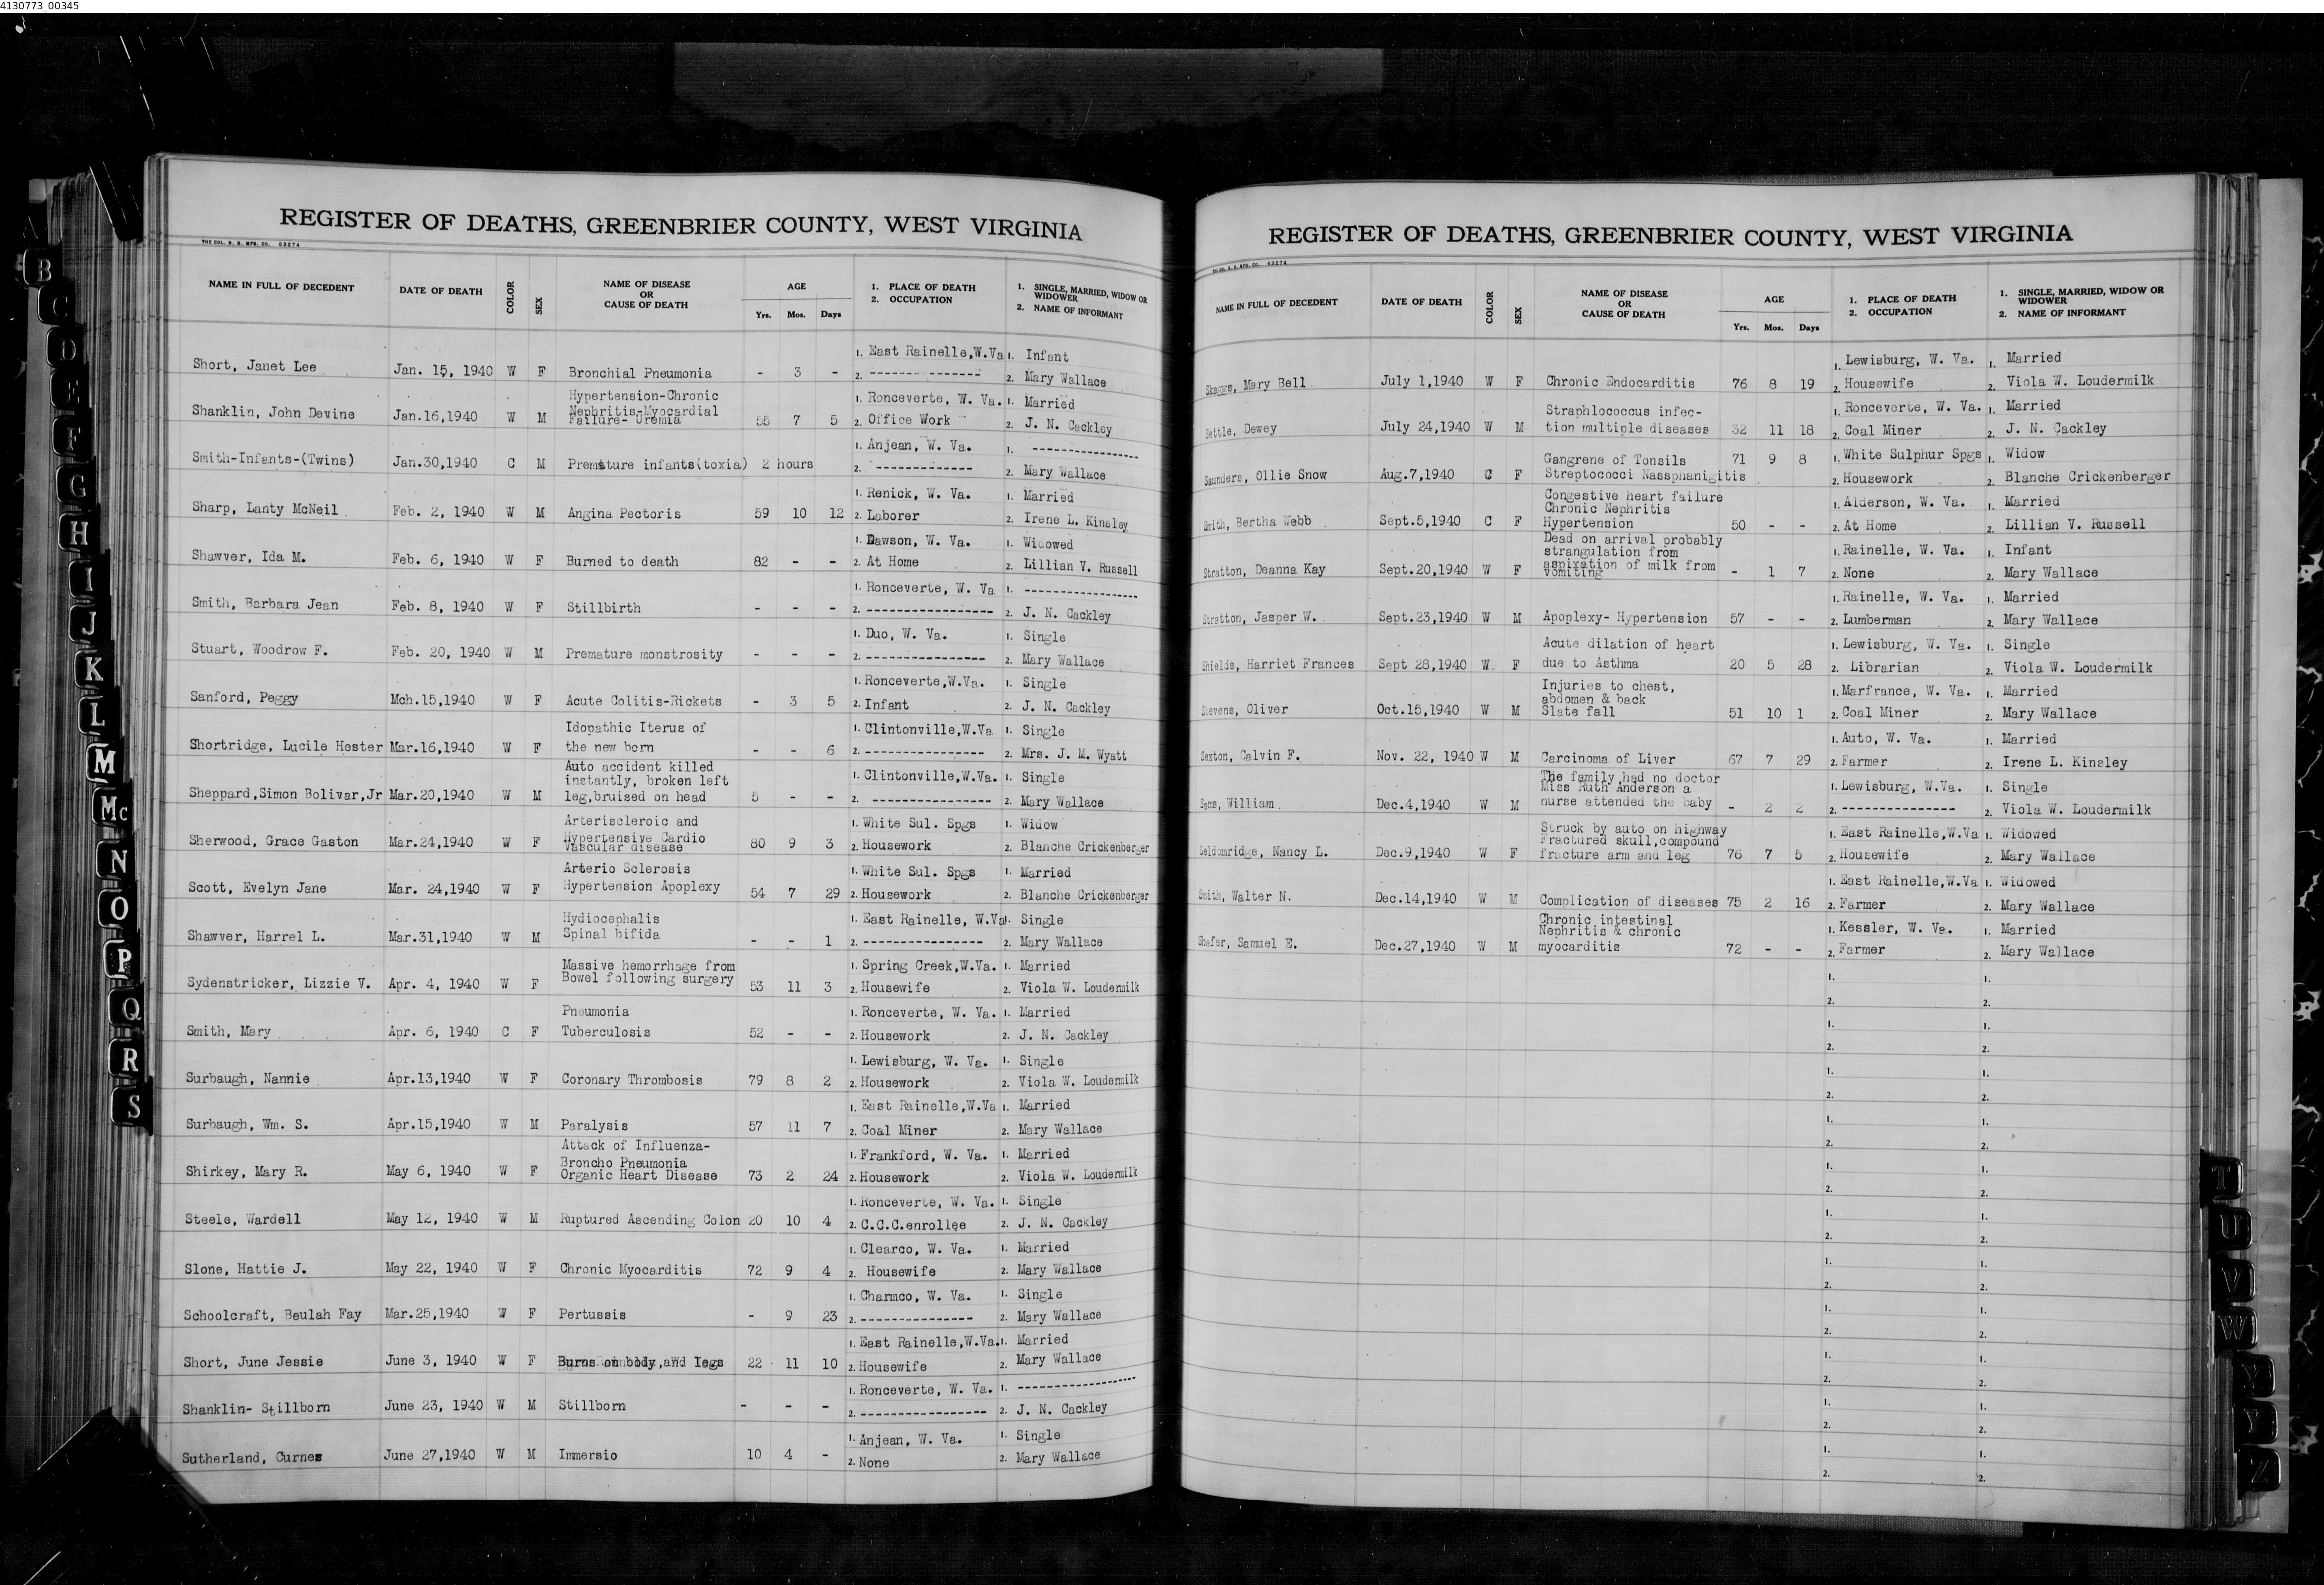 4130773_00345
REGISTER OF DEATHS, GREENBRIER COUNTY, WEST VIRGINIA
THE COL. B. B. MFG. CO. 63274
NAME IN FULL OF DECEDENT DATE OF DEATH COLOR SEX NAME OF DISEASE OR CAUSE OF DEATH AGE Yrs. Mos. Days 1. PLACE OF DEATH 2. OCCUPATION 1. SINGLE, MARRIED, WIDOW OR WIDOWER 2. NAME OF INFORMANT
1. East Rainelle,W.Va 1. Infant
Short, Janet Lee Jan. 15, 1940 W F Bronchial Pneumonia - 3 - 2. ------- ------- 2. Mary Wallace
Hypertension-Chronic 1. Ronceverte, W. Va. 1. Married
Shanklin, John Devine Jan.16,1940 W M Nephritis-Myocardial Failure- Uremia 55 7 5 2. Office Work 2. J. N. Cackley
1. Anjean, W. Va. 1. ----------------
Smith-Infants-(Twins) Jan.30,1940 C M Premature infants(toxia) 2 hours 2. -------------- 2. Mary Wallace
1. Renick, W. Va. 1. Married
Sharp, Lanty McNeil Feb. 2, 1940 W M Angina Pectoris 59 10 12 2. Laborer 2. Irene L. Kinsley
1. Dawson, W. Va. 1. Widowed
Shawver, Ida M. Feb. 6, 1940 W F Burned to death 82 - - 2. At Home 2. Lillian V. Russell
1. Ronceverte, W. Va 1. ----------------
Smith, Barbara Jean Feb. 8, 1940 W F Stillbirth - - - 2. ----------------- 2. J. N. Cackley
1. Duo, W. Va. 1. Single
Stuart, Woodrow F. Feb. 20, 1940 W M Premature monstrosity - - - 2. ---------------- 2. Mary Wallace
1. Ronceverte,W.Va. 1. Single
Sanford, Peggy Mch.15,1940 W F Acute Colitis-Rickets - 3 5 2. Infant 2. J. N. Cackley
Idopathic Iterus of 1. Clintonville,W.Va 1. Single
Shortridge, Lucile Hester Mar.16,1940 W F the new born - - 6 2. ---------------- 2. Mrs. J. M. Wyatt
Auto accident killed
instantly, broken left 1. Clintonville,W.Va. 1. Single
Sheppard,Simon Bolivar,Jr Mar.20,1940 W M leg,bruised on head 5 - - 2. ---------------- 2. Mary Wallace
Arteriscleroic and 1. White Sul. Spgs 1. Widow
Sherwood, Grace Gaston Mar.24,1940 W F Hypertensive Cardio Vascular disease 80 9 3 2. Housework 2. Blanche Crickenberger
Arterio Sclerosis 1. White Sul. Spgs 1. Married
Scott, Evelyn Jane Mar. 24,1940 W F Hypertension Apoplexy 54 7 29 2. Housework 2. Blanche Crickenberger
Hydiocephalis 1. East Rainelle, W.Va 1. Single
Shawver, Harrel L. Mar.31,1940 W M Spinal bifida - - 1 2. ---------------- 2. Mary Wallace
Massive hemorrhage from 1. Spring Creek,W.Va. 1. Married
Sydenstricker, Lizzie V. Apr. 4, 1940 W F Bowel following surgery 53 11 3 2. Housewife 2. Viola W. Loudermilk
Pneumonia 1. Ronceverte, W. Va. 1. Married
Smith, Mary Apr. 6, 1940 C F Tuberculosis 52 - - 2. Housework 2. J. N. Cackley
1. Lewisburg, W. Va. 1. Single
Surbaugh, Nannie Apr.13,1940 W F Coronary Thrombosis 79 8 2 2. Housework 2. Viola W. Loudermilk
1. East Rainelle,W.Va 1. Married
Surbaugh, Wm. S. Apr.15,1940 W M Paralysis 57 11 7 2. Coal Miner 2. Mary Wallace
Attack of Influenza- 1. Frankford, W. Va. 1. Married
Shirkey, Mary R. May 6, 1940 W F Broncho Pneumonia Organic Heart Disease 73 2 24 2. Housework 2. Viola W. Loudermilk
1. Ronceverte, W. Va. 1. Single
Steele, Wardell May 12, 1940 W M Ruptured Ascending Colon 20 10 4 2. C.C.C.enrollee 2. J. N. Cackley
1. Clearco, W. Va. 1. Married
Slone, Hattie J. May 22, 1940 W F Chronic Myocarditis 72 9 4 2. Housewife 2. Mary Wallace
1. Charmco, W. Va. 1. Single
Schoolcraft, Beulah Fay Mar.25,1940 W F Pertussis - 9 23 2. --------------- 2. Mary Wallace
1. East Rainelle,W.Va. 1. Married
Short, June Jessie June 3, 1940 W F Burns on body,and legs 22 11 10 2. Housewife 2. Mary Wallace
1. Ronceverte, W. Va. 1. ----------------
Shanklin- Stillborn June 23, 1940 W M Stillborn - - - 2. ----------------- 2. J. N. Cackley
1. Anjean, W. Va. 1. Single
Sutherland, Curnes June 27,1940 W M Immersio 10 4 - 2. None 2. Mary Wallace
REGISTER OF DEATHS, GREENBRIER COUNTY, WEST VIRGINIA
THE COL. B. B. MFG. CO. 63274
NAME IN FULL OF DECEDENT DATE OF DEATH COLOR SEX NAME OF DISEASE OR CAUSE OF DEATH AGE Yrs. Mos. Days 1. PLACE OF DEATH 2. OCCUPATION 1. SINGLE, MARRIED, WIDOW OR WIDOWER 2. NAME OF INFORMANT
1. Lewisburg, W. Va. 1. Married
Skaggs, Mary Bell July 1,1940 W F Chronic Endocarditis 76 8 19 2. Housewife 2. Viola W. Loudermilk
Straphlococcus infec- 1. Ronceverte, W. Va. 1. Married
Settle, Dewey July 24,1940 W M tion multiple diseases 32 11 18 2. Coal Miner 2. J. N. Cackley
Gangrene of Tonsils 71 9 8 1. White Sulphur Spgs 1. Widow
Saunders, Ollie Snow Aug.7,1940 C F Streptococci Nassphanigitis 2. Housework 2. Blanche Crickenberger
Congestive heart failure
Chronic Nephritis 1. Alderson, W. Va. 1. Married
Smith, Bertha Webb Sept.5,1940 C F Hypertension 50 - - 2. At Home 2. Lillian V. Russell
Dead on arrival probably
strangulation from 1. Rainelle, W. Va. 1. Infant
Stratton, Deanna Kay Sept.20,1940 W F aspiration of milk from vomiting - 1 7 2. None 2. Mary Wallace
1. Rainelle, W. Va. 1. Married
Stratton, Jasper W. Sept.23,1940 W M Apoplexy- Hypertension 57 - - 2. Lumberman 2. Mary Wallace
Acute dilation of heart 1. Lewisburg, W. Va. 1. Single
Shields, Harriet Frances Sept 28,1940 W. F due to Asthma 20 5 28 2. Librarian 2. Viola W. Loudermilk
Injuries to chest,
abdomen & back 1. Marfrance, W. Va. 1. Married
Stevens, Oliver Oct.15,1940 W M Slate fall 51 10 1 2. Coal Miner 2. Mary Wallace
1. Auto, W. Va. 1. Married
Sexton, Calvin F. Nov. 22, 1940 W M Carcinoma of Liver 67 7 29 2. Farmer 2. Irene L. Kinsley
The family had no doctor
Miss Ruth Anderson a 1. Lewisburg, W.Va. 1. Single
Sams, William Dec.4,1940 W M nurse attended the baby - 2 2 2. --------------- 2. Viola W. Loudermilk
Struck by auto on highway
Fractured skull,compound 1. East Rainelle,W.Va 1. Widowed
Seldomridge, Nancy L. Dec.9,1940 W F fracture arm and leg 76 7 5 2. Housewife 2. Mary Wallace
1. East Rainelle,W.Va 1. Widowed
Smith, Walter N. Dec.14,1940 W M Complication of diseases 75 2 16 2. Farmer 2. Mary Wallace
Chronic intestinal
Nephritis & chronic 1. Kessler, W. Va. 1. Married
Shafer, Samuel E. Dec.27,1940 W M myocarditis 72 - - 2. Farmer 2. Mary Wallace
1. 1.
2. 2.
1. 1.
2. 2.
1. 1.
2. 2.
1. 1.
2. 2.
1. 1.
2. 2.
1. 1.
2. 2.
1. 1.
2. 2.
1. 1.
2. 2.
1. 1.
2. 2.
1. 1.
2. 2.
1. 1.
2. 2.
B
C
D
E
F
G
H
I
J
K
L
M
Mc
N
O
P
Q
R
S
T
U
V
W
X
Y
Z